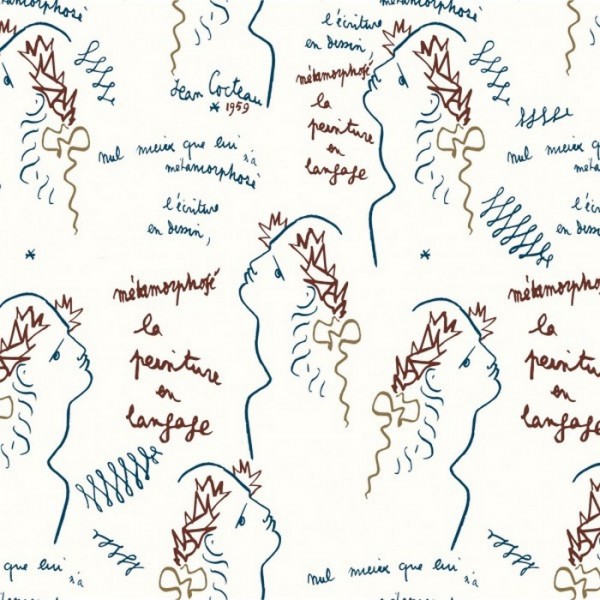 métamorphosé
l'écriture
en dessin,
métamorphosé
la
peinture
en
langage
Jean Cocteau
* 1959
nul mieux que lui n'a
métamorphosé
l'écriture
en dessin,
métamorphosé
la
peinture
en
langage
nul mieux que
méta
l'écriture
en dessin
métamorphosé
la
peinture
en
langage
que lui n'a
nul mieux que lui n'a